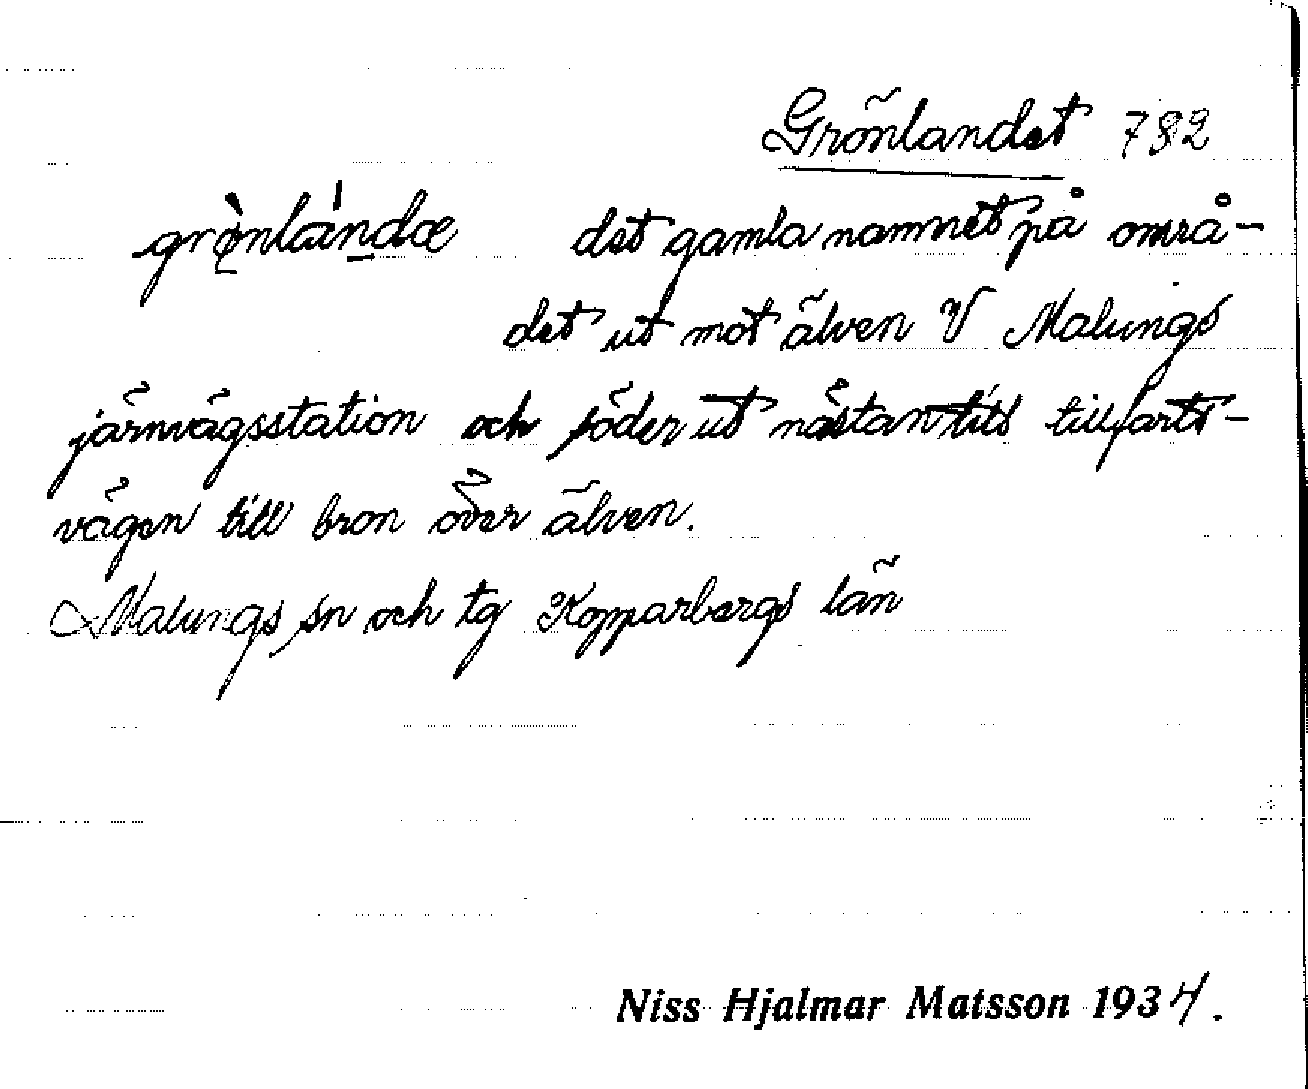 Grönlandet 782
grò̢nlán̠dæ det gamla namnet på områ-
det ut mot älven V Malungs
järnvägsstation och söder ut nästan till tillfarts-
vägen till bron över älven.
Malungs sn och tg Kopparbergs län
Niss Hjalmar Matsson 1934.